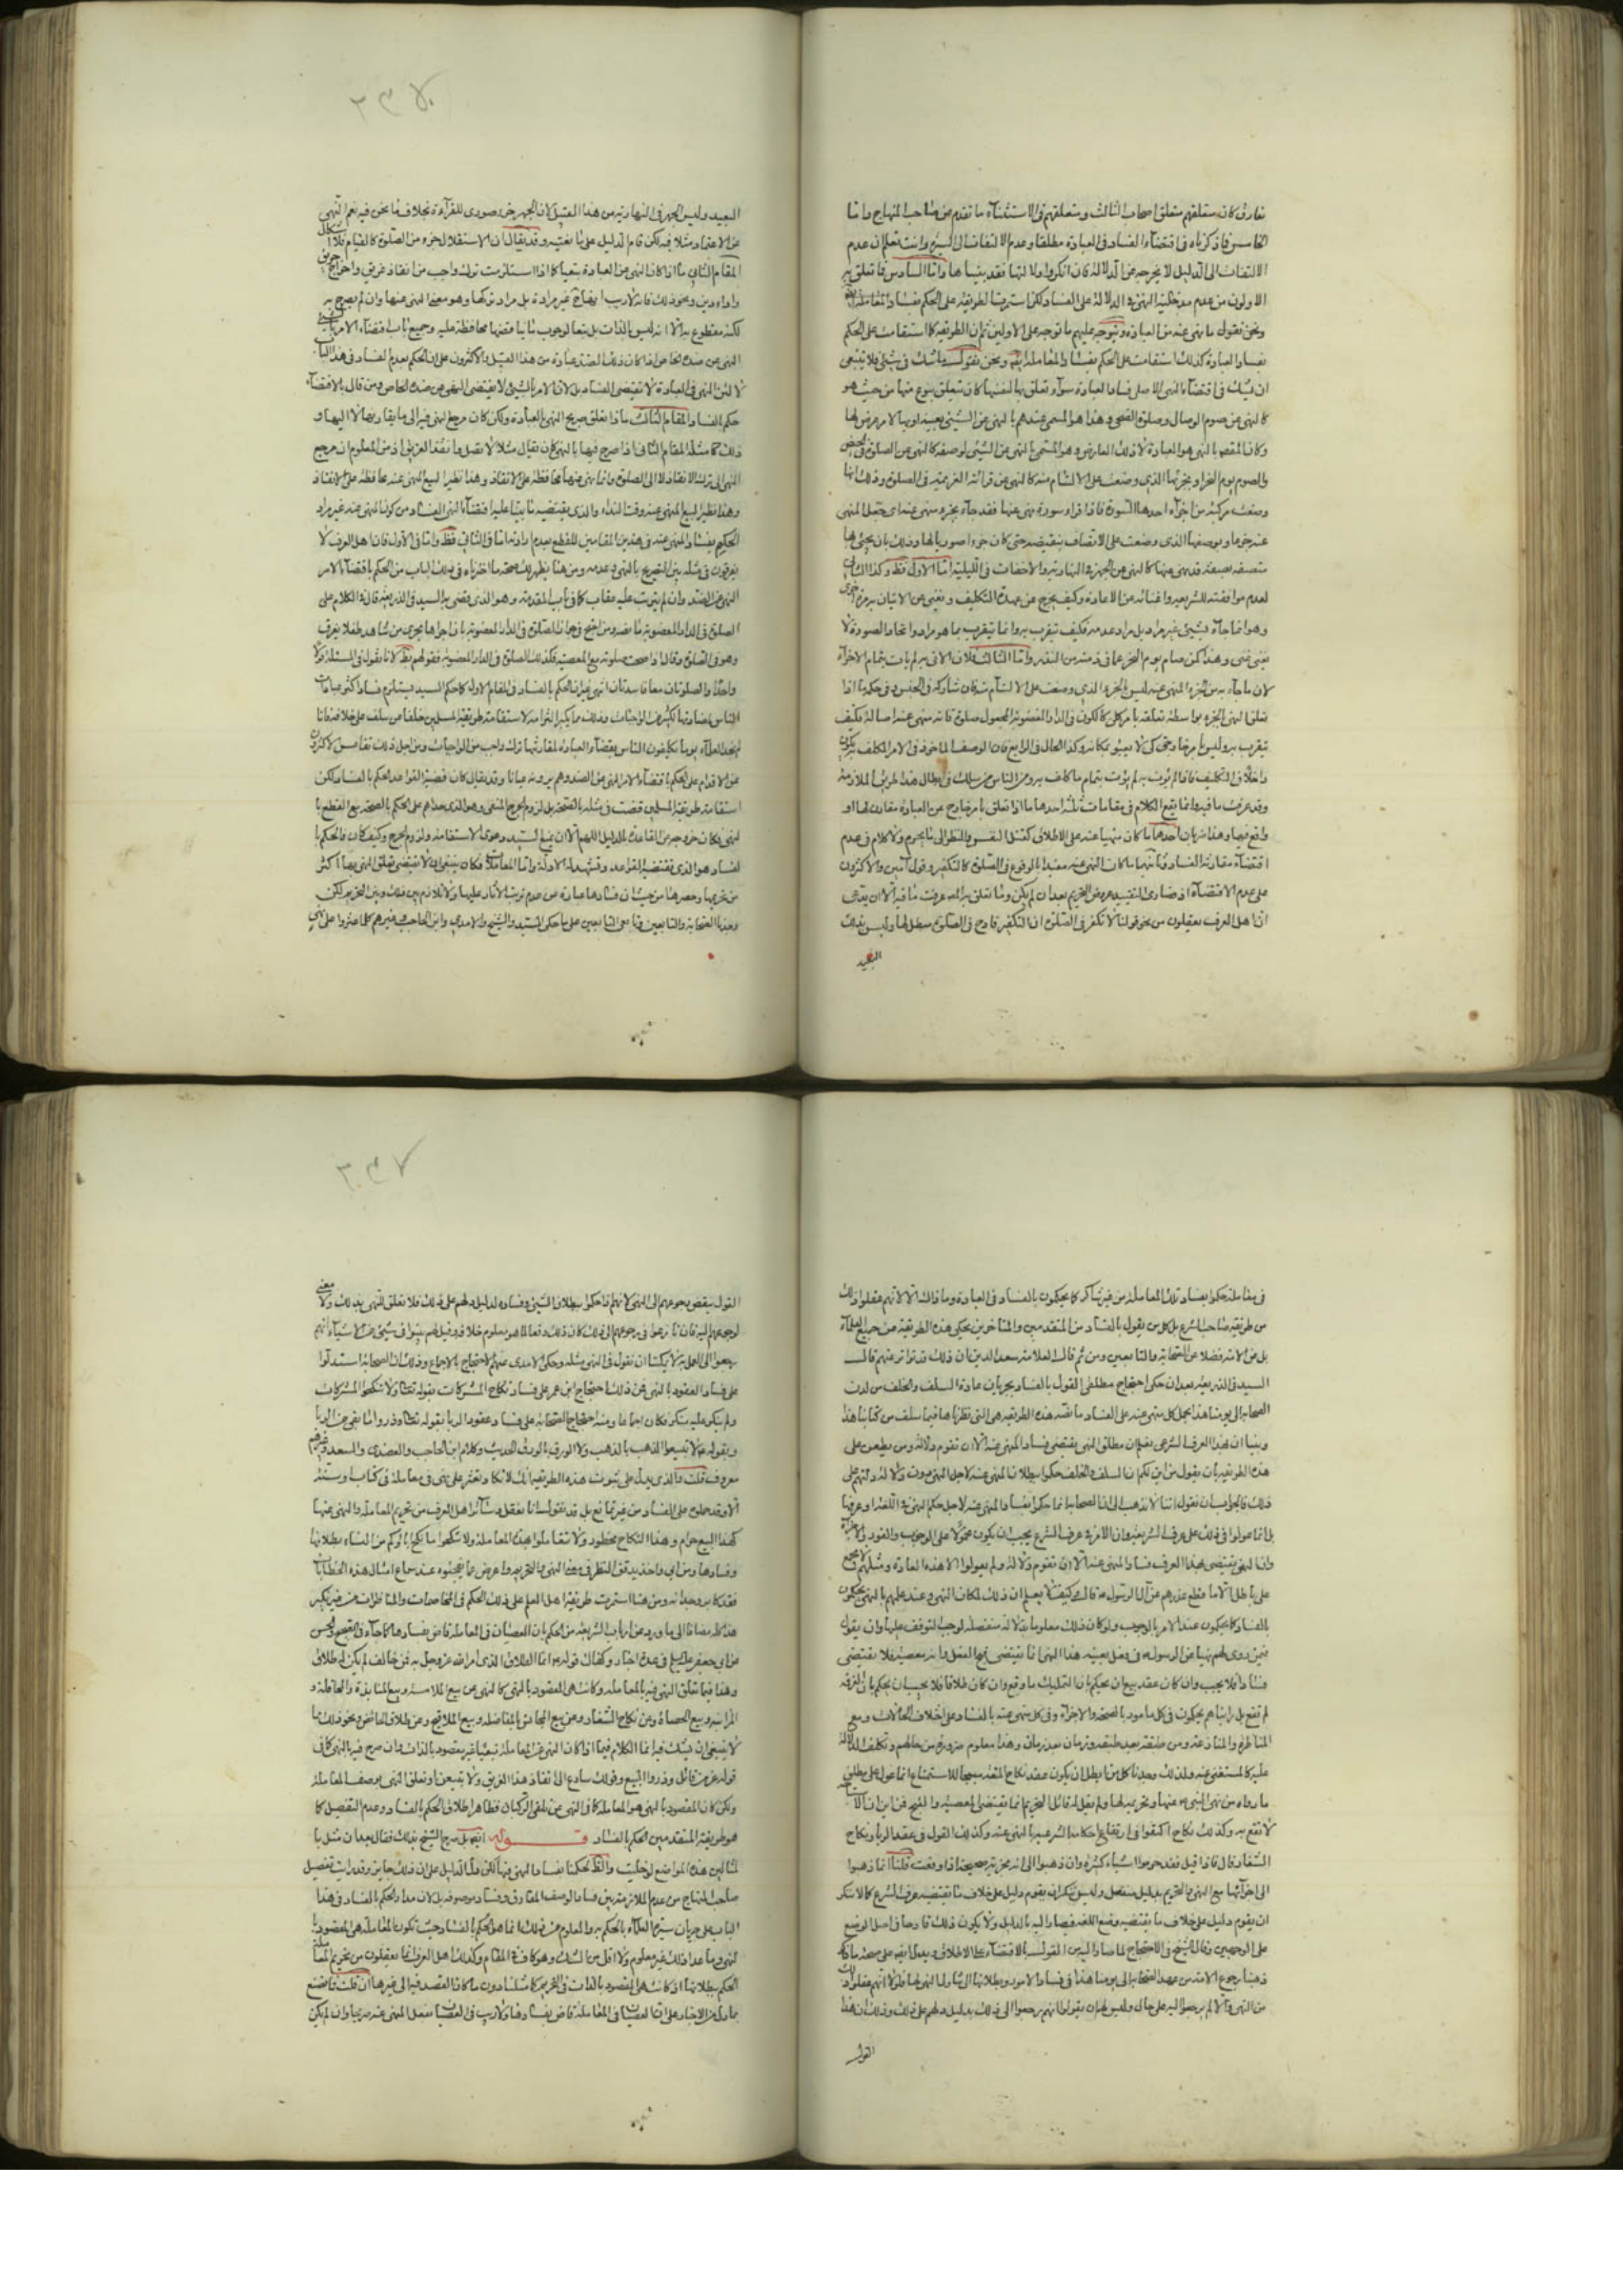 تعارف كان متعلقهم متعلق اصحاب الثالث ومتعلقهم فى الاستثناء ما تقدم من صاحب المنهاج واما
الخامس فما ذكرناه فى اقتضاء الفساد فى العبادة مطلقا وعدم الالتفات الى الشرع وانت تعلم ان عدم
الالتفات الى الدليل لا يخرجه عن الدلالة فان انكروا دلالتها فقد بيناها واما السادس فما تعلق به
الاولون من عدم مدخلية النهى فى الدلالة على الفساد ولكن استمرت الطريقة على الحكم بفساد المعاملة
ونحن نقول ما نهى عنه من العبادة ويتوجه عليهم ما توجه على الاولين ثم ان الطريقة كما استقامت على الحكم
بفساد العبادة كذلك استقامت على الحكم بفساد المعاملة ايضا ونحن نقول ما شك فى شئ فلا ينبغى
ان يشك فى اقتضاء النهى الاصلى فساد العبادة سواء تعلق بها لنفسها كان يتعلق بنوع منها من حيث هو
كالنهى عن صوم الوصال وصلوة الضحى وهذا هو المسمى عندهم بالنهى عن الشئ بعينه او بها لامر عرض لها
وكان المقصد بالنهى هو العبادة لا ذلك العارض وهو المسمى بالنهى عن الشئ لوصفه كالنهى عن الصلوة فى الحيض
والصوم يوم النحر او بجزئها الذى وضعت على الالتئام منه كالنهى عن قرائة العزيمة فى الصلوة وذلك انها
وضعت مركبة من اجزاء احدها السورة فاذا قراء سورة نهى عنها فقد جاء بجزء منهى عنه اى جعل المنهى
عنه جزءها وبوصفها الذى وضعت على الاتصاف بنقيضه حتى كان جزءا صوريا لها وذلك بان يجئ بها
متصفة بصفة قد نهى عنها كالنهى عن الجهر فى النهارية والاخفات فى الليلية اما الاول فظ وكذا الثانى
لعدم موافقته للشريعة واغنائه عن الاعادة وكيف يخرج عن عهدة التكليف ويغنى عن الاتيان به مرة اخرى
وهو انما جاء بشئ غير مراد بل مراد عدمه فكيف يتقرب به وانما يتقرب بما هو مراد واتحاد الصورة لا
يغنى وهذا كمن صام يوم النحر عما فى ذمته من النذر واما الثالث فلان الاتى به لم يات بتمام الاجزاء
لان ما جاء به من الجزء المنهى عنه ليس الجزء الذى وضعت على الالتئام منه وان شاركه فى الجنس وفى حكمه ما اذا
تعلق النهى بالجزء بواسطة تعلقه بامر كلى كالكون فى الدار المغصوبة المجعول صلوة فانه منهى عنه اصالة فكيف
يتقرب به وليس بامر خارجى كى لا يعبؤ بمكانه وكذا الحال فى الرابع فان الوصف الماخوذ فى الامر المكلف به يكون
داخلا فى التكليف فاذا لم يؤت به لم يؤت بتمام ما كلف به ومن الناس من سلك فى ابطال هذا طريق الملازمة
وقد عرفت ما فيه وانما يقع الكلام فى مقامات ثلثة احدها ما اذا تعلق بامر خارج عن العبادة مقارن لها او
واقع فيها وهذا ضربان احدهما ما كان منهيا عنه على الاطلاق كقتل النفس والنظر الى ما يحرم ولا كلام فى عدم
اقتضاء مقارنة الفساد وثانيهما ما كان النهى عنه مقيدا بالوقوع فى الصلوة كالتكفير وقول آمين والاكثرون
على عدم الاقتضاء اذ قصارى التقييد عروض التحريم بعد ان لم يكن وما تعلق به المعروف ما فيه الا ان يدعى
ان اهل العرف يعقلون من نحو قولنا لا تكفر فى الصلوة ان التكفير قادح فى الصلوة مبطل لها وليس بذلك
البعيد
البعيد وليس الجهر فى النهارية من هذا القبيل لان الجهر جزء صورى للقرآءة بخلاف ما نحن فيه نعم النهى
عن الاعتماد مثلا فيه لكن قام الدليل على ما بغيته وقد يقال ان الاستقلال جزء من الصلوة كالقيام فلا اشكال
المقام الثانى ما اذا كان النهى عن العبادة تبعيا كما اذا استلزمت ترك واجب من انقاذ غريق واخراج حريق
واداء دين ونحو ذلك فانه لا ريب انها غير مرادة بل مراد تركها وهو معنى النهى عنها وان لم يصرح به
لكنه مقطوع به الا انه ليس بالذات بل تبعا لوجوب ما نيا فيها محافظة عليه وجميع باب اقتضاء الامر بالشئ
النهى عن ضده الخاص اذا كان ذلك الضد عبادة من هذا القبيل والاكثرون على ان الحكم بعدم الفساد فى هذا الباب
لا لان النهى فى العبادة لا يقتضى الفساد بل لان الامر بالشئ لا يقتضى النهى عن ضده الخاص ومن قال بالاقتضاء
حكم بالفساد المقام الثالث ما اذا تعلق صريح النهى بالعبادة ولكن كان مرجع النهى فيه الى ما يقارنها لا اليها و
ذلك كما مثلة المقام الثانى اذا صرح فيها بالنهى كان يقال مثلا لا تصل وانقذ الغريق اذ من المعلوم ان مرجع
النهى الى ترك الانقاذ لا الى الصلوة وانما نهى عنها محافظة على الانقاذ وهذا نظير البيع المنهى عنه محافظة على الانقاذ
وهذا نظير البيع المنهى عنه وقت النداء والذى يقتضيه ما بينا عليه اقتضاء النهى الفساد من كون المنهى عنه غير مراد
الحكم بفساد المنهى عنه فى هذين المقامين للقطع بعدم ارادته اما فى الثانى فظ واما فى الاول فلان اهل العرف لا
يفرقون فى مثله بين التصريح بالنهى وعدمه ومن هنا يظهر لك صحة ما اخترناه فى ذلك الباب من الحكم باقتضاء الامر
النهى عن الضد وان لم يترتب عليه عقاب كما فى باب المقدمة وهو الذى قضى به السيد فى الذريعة قال فى الكلام على
الصلوة فى الدار المغصوبة ما نصه ومن احتج فى جواز الصلوة فى الدار المغصوبة بان اجراها مجرى من شاهد طفلا يغرق
وهو فى الصلوة وقال اذا صحت صلوته مع المعصية فكذلك الصلوة فى الدار المغصوبة فقولهم بط لانا نقول فى المسئلة قولا
واحدا والصلوتان معا فاسدتان انتهى غير ان الحكم بالفساد فى المقام الاول كما حكم السيد يستلزم فساد اكثر عبادات
الناس لمضادتها لكثير من الواجبات وذلك مما يكبر التزامه لاستقامة طريقة المسلمين خلفا عن سلف على خلافه فانا
لم نجد العلماء يوما يكلفون الناس بقضاء العبادة لمقارنتها ترك واجب من الواجبات ومن اجل ذلك تقاعس الاكثرون
عن الاقدام على الحكم باقتضاء الامر النهى عن الضد وهم يرونه عيانا وقد يقال كان قضية القواعد الحكم بالفساد لكن
استقامة طريقة المسلمين قضت فى مثله بالصحة بل لزوم الحرج المنفى وهو الذى حداهم على الحكم بالصحة مع القطع با
لنهى فكان خروجا عن القاعدة للدليل اللهم الا ان يمنع السيد دعوى الاستقامة ولزوم الحرج وكيف كان فالحكم با
لفساد هو الذى تقتضيه القواعد وتشهد له الادلة واما المعاملة فكان ينبغى ان لا يقتضى تعلق النهى بها اكثر
من تحريمها وحصرها من حيث ان فسادها عبارة عن عدم ترتب الآثار عليها ولا تلازم بين ذلك وبين التحريم لكن
وجدنا الصحابة والتابعين وتابعى التابعين على ما حكى السيد والشيخ والامدى وابن الحاجب وغيرهم كلما عثروا على نهى
فى معاملة حكموا بفساد تلك المعاملة من غير تناكر كما يحكمون بالفساد فى العبادة وما ذاك الا لانهم عقلوا ذلك
من طريقة صاحب الشرع بل كل من يقول بالفساد من المتقدمين والمتاخرين يحكى هذه الطريقة عن جميع العلماء
بل عن الامة فضلا عن الصحابة والتابعين ومن ثم قال العلامة سعد الدين ان ذلك قد تواتر عنهم قال
السيد فى الذريعة بعد ان حكى احتجاج مطلقى القول بالفساد بجريان عادة السلف والخلف من لدن
الصحابة الى يومنا هذا بحمل كل منهى عنه على الفساد ما نصه هذه الطريقة هى التى نظرناها فيما سلف من كتابنا هذا
وبينا ان بهذا العرف الشرعى يعلم ان مطلق النهى يقتضى فساد المنهى عنه الا ان تقوم دلالة ومن يطعن على
هذه الطريقة بان يقول من اين لكم ان السلف والخلف حكموا ببطلان المنهى عنه لاجل النهى دون دلالة دلتهم على
ذلك فالجواب ان نقول اننا لا نذهب الى ان الصحابة انما حكموا بفساد المنهى عنه لاجل حكم النهى فى اللغة او عرفها
بل انما عولوا فى ذلك على عرف الشريعة وان الامر فى عرف الشرع يجب ان يكون محمولا على الوجوب والفور والاجزاء
وان النهى يقتضى بهذا العرف فساد المنهى عنه الا ان تقوم دلالة ولم يعولوا الا هذه العادة ومثلهم لا يجمع
على باطل الا ما قطع عذرهم عن الرسول ص قال وكيف لا يعلم ان ذلك لمكان النهى وعند علمهم بالنهى يحكمون
بالفساد كما يحكمون عند الامر بالوجوب ولو كان ذلك معلوما بدلالة منفصلة لوجب التوقف عليها وان يقول
فمن روى لهم نهيا عن الرسول ص فى فعل بعينه هذا النهى انما يقتضى قبح الفعل وانه معصية فلا يقتضى
فسادا فلا يجب وان كان عقد بيع ان يحكم بان التمليك ما وقع وان كان طلاقا فلا يجب ان يحكم بان الفرقة
لم تقع بل رايناهم يحكمون فى كل مامور بالصحة والاجزاء وفى كل منهى عنه بالفساد على اختلاف الحالات ومع
المناظرة والمنازعة ومن طبقة بعد طبقة وزمان بعد زمان وهذا معلوم ضرورة من حالهم وتكلف الدلالة
عليه كالمستغنى عنه ولذلك وجدنا كل من ابطل ان يكون عقد نكاح المتعة مبيحا للاستمتاع انما عول على مطلق
ما رواه من نهى النبى ص عنها وتحريمه لها ولم يقل له قائل التحريم انما يقتضى المعصية والقبح فمن اين ان الاستباحة
لا تقع به وكذلك نكاح اكتفوا فى ارتفاع احكامه الشرعية بالنهى عنه وكذلك القول فى عقد الربا ونكاح
الشغار قال فاذا قيل فقد حرموا اشياء كثيرة وان ذهبوا الى انه مجزئ صحيحة اذا وقعت قلنا انما ذهبوا
الى اجزائها مع النهى والتحريم بدليل منفصل وليس ننكر ان يقوم دليل على خلاف ما يقتضيه عرف الشرع كما لا ننكر
ان يقوم دليل على خلاف ما يقتضيه وضع اللغة فيصار اليه بالدليل ولا يكون ذلك قادحا فى اصل الوضع
على الوجهين وقال الشيخ فى الاحتجاج لما صار اليه من القول بالاقتضاء على الاطلاق ويدل ايضا على صحة ما
ذهبنا رجوع الامة من عهد الصحابة الى يومنا هذا فى فساد الامور وبطلانها الى تناول النهى لها فلولا انهم عقلوا ذلك
من النهى والا لم يرجعوا اليه على حال وليس لهم ان يقولوا انهم رجعوا الى ذلك بدليل دلهم على ذلك وذلك ان هذا
القول
القول ينقض رجوعهم الى النهى لانهم اذا حكموا ببطلان الشئ وفساده لدليل دلهم على ذلك فلا تعلق للنهى بذلك ولا معنى
لرجوعهم اليه فان نازعوا فى رجوعهم الى ذلك كان ذلك دفعا لما هو معلوم خلافه وقيل لهم بينوا فى شئ من الاشياء انهم
رجعوا الى العمل به لا يمكننا ان نقول فى النهى مثله وحكى الامدى عنهم الاحتجاج بالاجماع وذلك ان الصحابة استدلوا
على فساد العقود بالنهى فمن ذلك احتجاج ابن عمر على فساد نكاح المشركات بقوله تعالى ولا تنكحوا المشركات
ولم ينكر عليه منكر فكان اجماعا ومنه احتجاج الصحابة على فساد عقود الربا بقوله تعالى وذروا ما بقى من الربا
وبقوله ص لا تبيعوا الذهب بالذهب ولا الورق بالورق الحديث وكلام ابن الحاجب والعضدى والسعد وغيرهم
معروف قلت والذى يدل على ثبوت هذه الطريقة انك لا تكاد تعثر على نهى فى معاملة فى كتاب او سنة
الا وقد حمل على الفساد من غير تمانع بل قد نقول انا نعقل وسائر اهل العرف من تحريم المعاملة والنهى عنها
كهذا البيع حرام وهذا النكاح محظور ولا تعاملوا بهذه المعاملة ولا تنكحوا ما نكح اباؤكم من النساء بطلانها
وفسادها ومن ابى واخذ يدقق النظر فى معنى النهى والتحريم واعرض عما يجده عند سماع امثال هذه الخطابات
فقد كابر وجدانه ومن هنا استمرت طريقة اهل العلم على ذلك الحكم فى المخاصمات والمناظرات من غير نكير
هذا كله مضافا الى ما ورد عن ارباب الشريعة من الحكم بان العصيان فى المعاملة قاض بفسادها كما جاء فى الصحيح والحسن
عن ابى جعفر عليه السلم فى عدة اخبار وكفاك قوله ع انما الطلاق الذى امر الله عز وجل به فمن خالف لم يكن له طلاق
وهذا فيما تعلق النهى فيه بالمعاملة وكانت هى المقصود بالنهى كالنهى عن بيع الملامسة وبيع المنابذة والمحاقلة و
المزابنة وبيع الحصاة وعن نكاح الشغار وعن بيع المجانس بالمفاضلة وبيع الملاقيح وعن طلاق الحائض ونحو ذلك مما
لا ينبغى ان يشك فيه انما الكلام فيما اذا كان النهى عن المعاملة تبعيا غير مقصود بالذات وان صرح فيه بالنهى كما فى
قوله عز من قائل وذروا البيع وقولك سارع الى انقاذ هذا الغريق ولا تبيعن او تعلق النهى بوصف المعاملة
ولكن كان المقصود بالنهى هو المعاملة كما فى النهى عن تلقى الركبان فظاهر اطلاق الحكم بالفساد وعدم التفصيل كما
هو طريقة المتقدمين الحكم بالفساد قوله انتهى بل صرح الشيخ بذلك فقال بعد ان مثل با
لمثالين هذه المواضع لو خليت والظ لحكمنا بفساد المنهى فيها لكن دل الدليل على ان ذلك جايز وقد رايت تفصيل
صاحب المنهاج من عدم الملازمة بين فساد الوصف المفارق وفساد موصوفه بل كان مدار الحكم بالفساد فى هذا
الباب على جريان سيرة العلماء بالحكم به والمعلوم من ذلك انما هو الحكم بالفساد حيث تكون المعاملة هى المقصودة با
لنهى وما عدا ذلك غير معلوم ولا اقل من الشك وهو كاف فى المقام وكذلك اهل العرف انما يعقلون من تحريم المعاملة
الحكم ببطلانها اذ كانت هى المقصود بالذات فى التحريم كما مثلنا دون ما كان القصد فيه الى غيرها ان قلت فما تصنع
بما دل من الاخبار على ان العصيان فى المعاملة قاض بفسادها ولا ريب فى العصيان بفعل المنهى عنه صريحا وان لم يكن